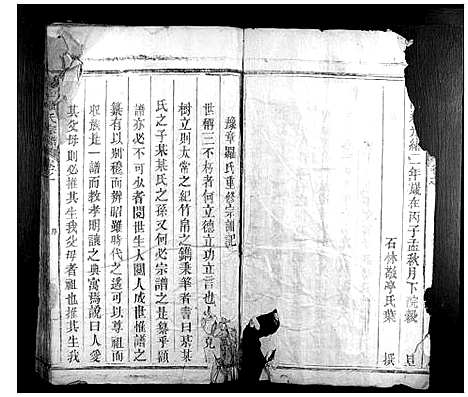 光緒二年歲在丙子孟秋月下院穀旦
石林敬亭氏葉 撰
豫章羅氏重修宗譜記
世稱三不朽者何立德立功立言也
樹立則太常之紀竹帛之鐫秉筆者書曰某某
氏之子某某氏之孫又何必宗譜之是纂乎顧
譜亦必不可弛者閱世生人關人成世惟譜之
纂有以別穆而辨昭雖時代之遙可以尊祖而
收族是一譜而教孝明讓之典寓焉說曰人愛
其父母則必推其生我父母者祖也推其生我